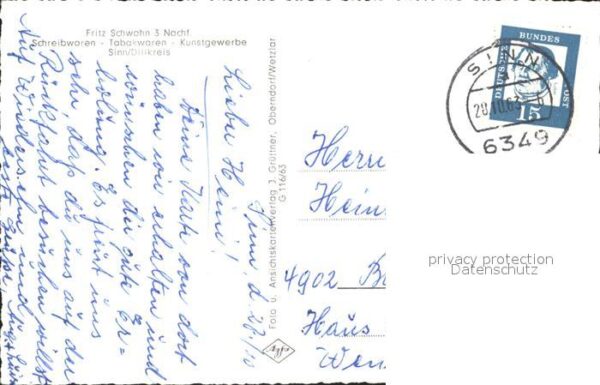 Fritz Schwahn 3 Nachf.
Schreibwaren - Tabakwaren - Kunstgewerbe
Sinn/Dillkreis
Sinn, d. 27/10
Lieber Heini!
Deine Karte von dort
haben wir erhalten und
wünschen dir gute Er=
holung. Es freut uns
sehr, daß du uns auf der
Rückfahrt besuchen willst
Auf Wiedersehn und
Foto u. Ansichtskartenverlag J. Grüttner, Oberndorf/Wetzlar
G 116/63
DEUTSCHE BUNDESPOST
15
SINN
a
28.10.63
6349
Herrn
Hein
4902
Haus
privacy protection
Datenschutz